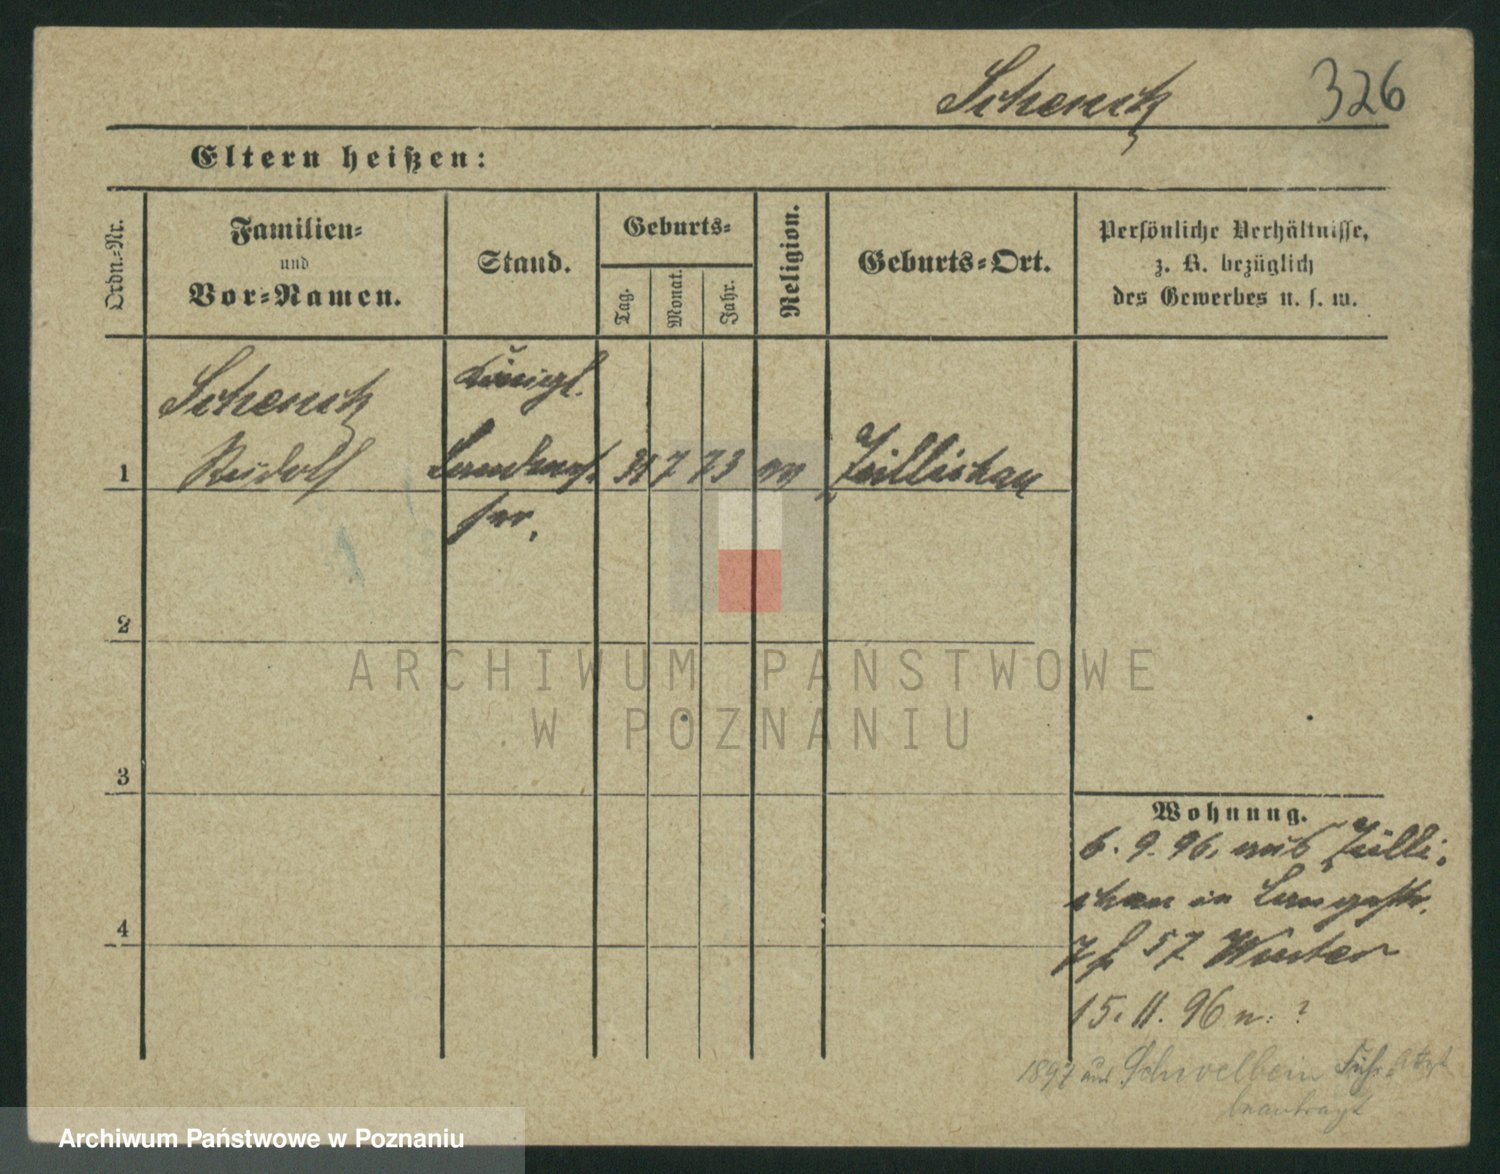 Schenck
326
Eltern heißen:
Ordn.-Nr.
Familien-
und
Vor-Namen.
Stand.
Geburts-
Tag.
Monat.
Jahr.
Religion.
Geburts-Ort.
Persönliche Verhältnisse,
z. B. bezüglich
des Gewerbes u. s. w.
Schenck
Rudolf
Königl.
1
31 7 73
Züllichau
2
ARCHIWUM PAŃSTWOWE
W POZNANIU
3
Wohnung.
6. 9. 96. aus Zülli-
chau in Langestr.
7 57 Winter
4
15. 11. 96 n. ?
1897 aus Schivelbein
beantragt
Archiwum Państwowe w Poznaniu